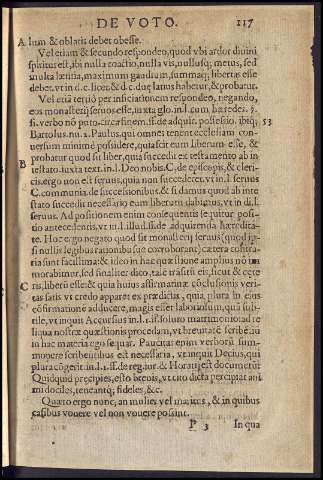 DE VOTO. 117
A lum & oblatis debet obesse.
Vel etiam & secundo respondeo, quod vbi ardor diuini
spiritus est, ibi nulla coactio, nulla vis, nullusq; metus, sed
multa lætitia, maximum gaudium, summaq; libertas esse
debet. vt in d. c. licet, & d. c. duæ latius habetur, & probatur.
Vel etiā tertiò per inficiationem respondeo, negando,
eos monasterij seruos esse, iuxta glo. in l. cum hæredes. §.
si. verbo nō puto. circa finem. ff. de adquir. possessio. ibiq; 53
Bartolus. nu. 2. Paulus. qui omnes tenent ecclesiam con-
uersum minimè possidere, quia scit eum liberum esse, &
probatur quod sit liber, quia succedit ex testamento ab in-
B testato. iuxta text. in l. Deo nobis. C. de episcopis, & cleri-
cis. ergo non est seruus, quia non succederet. vt in l. seruus
C. communia de successionibus. & si damus quod ab inte
stato succedit necessariò eum liberum dabimus, vt in d. l.
seruus. Ad positionem enim consequentis sequitur posi-
tio antecedentis, vt in l. illud. ff. de adquirenda hæredita-
te. Hoc ergo negato quod sit monasterij seruus (quod ip-
si nullis legibus rationibusue corroborant) cætera contra-
ria sunt facilima: & ideo in hac quæstione amplius nō im
morabimur, sed finaliter dico, talē trāsitū eis, sicut & cęte
C ris, liberū esse: & quia huius affirmatiuæ cōclusionis veri-
tas satis vt credo apparet ex prædictis, quia plura in eius
cōfirmationē adducere, magis esset laboriosum, quā suti-
tile, vt inquit Accursius in l. 1. ff. soluto matrimonio: ad re
liqua nostræ quæstionis procedam, vt breuitatē scribētiū
in hac materia ego sequar. Paucitas enim verborū sum-
mopere scribentibus est necessaria, vt inquit Decius, qui
plura cōgerit in. l. 1. ff. de reg. iur. & Horatij est documētū:
Quidquid præcipies, esto breuis, vt cito dicta percipiāt ani
mi dociles, teneantq; fideles, &c.
Quarto ergo nunc, an mulier vel maritus, & in quibus
casibus vouere vel non vouere possint.
P 3 In qua